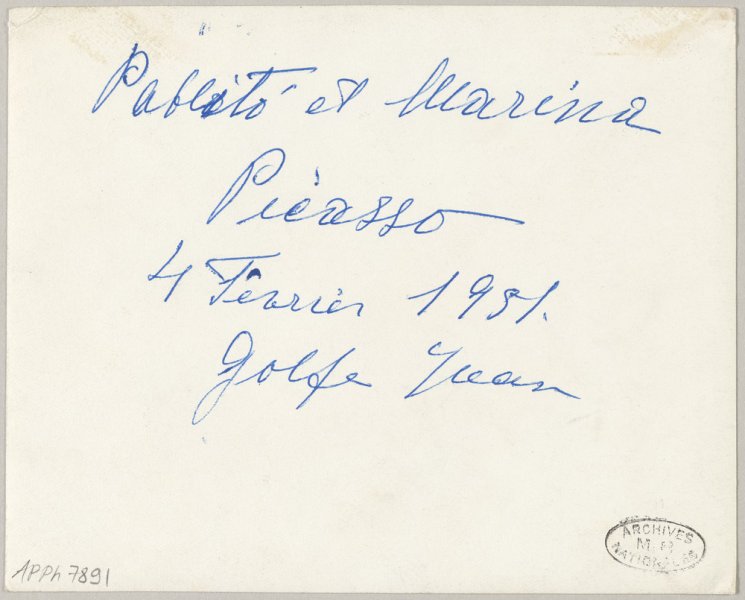 Pablito et Marina
Picasso
4 Février 1951.
Golfe Juan
ARCHIVES
NATIONALES
APPh 7891